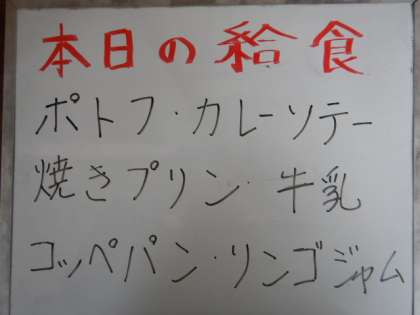 本日の給食
ポトフ・カレーソテー
焼きプリン・牛乳
コッペパン・リンゴジャム